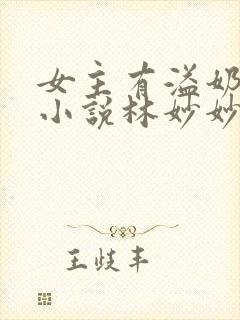 女主有溢奶
小说林妙妙
王歧丰